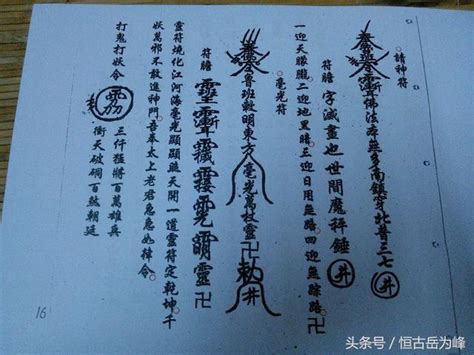 請神符
佛法本無多南鎮寧北普三七井
符膽 字滅畫也世間魔秤錘 井
一迎天朦朧二迎地黑暗三迎日月無路四迎無踪路卍
毫光符
魯班敕明東方毫光萬枝靈卍勅井
符膽 靈 靈卍
靈符燒化江河海毫光顯顯照天開一道靈符定乾坤千
妖萬邪不敢進神門吾奉太上老君急急如律令
打鬼打妖令
三仟猛將百萬雄兵
衝天破洞百煞朝廷
16
头条号／恒古岳为峰